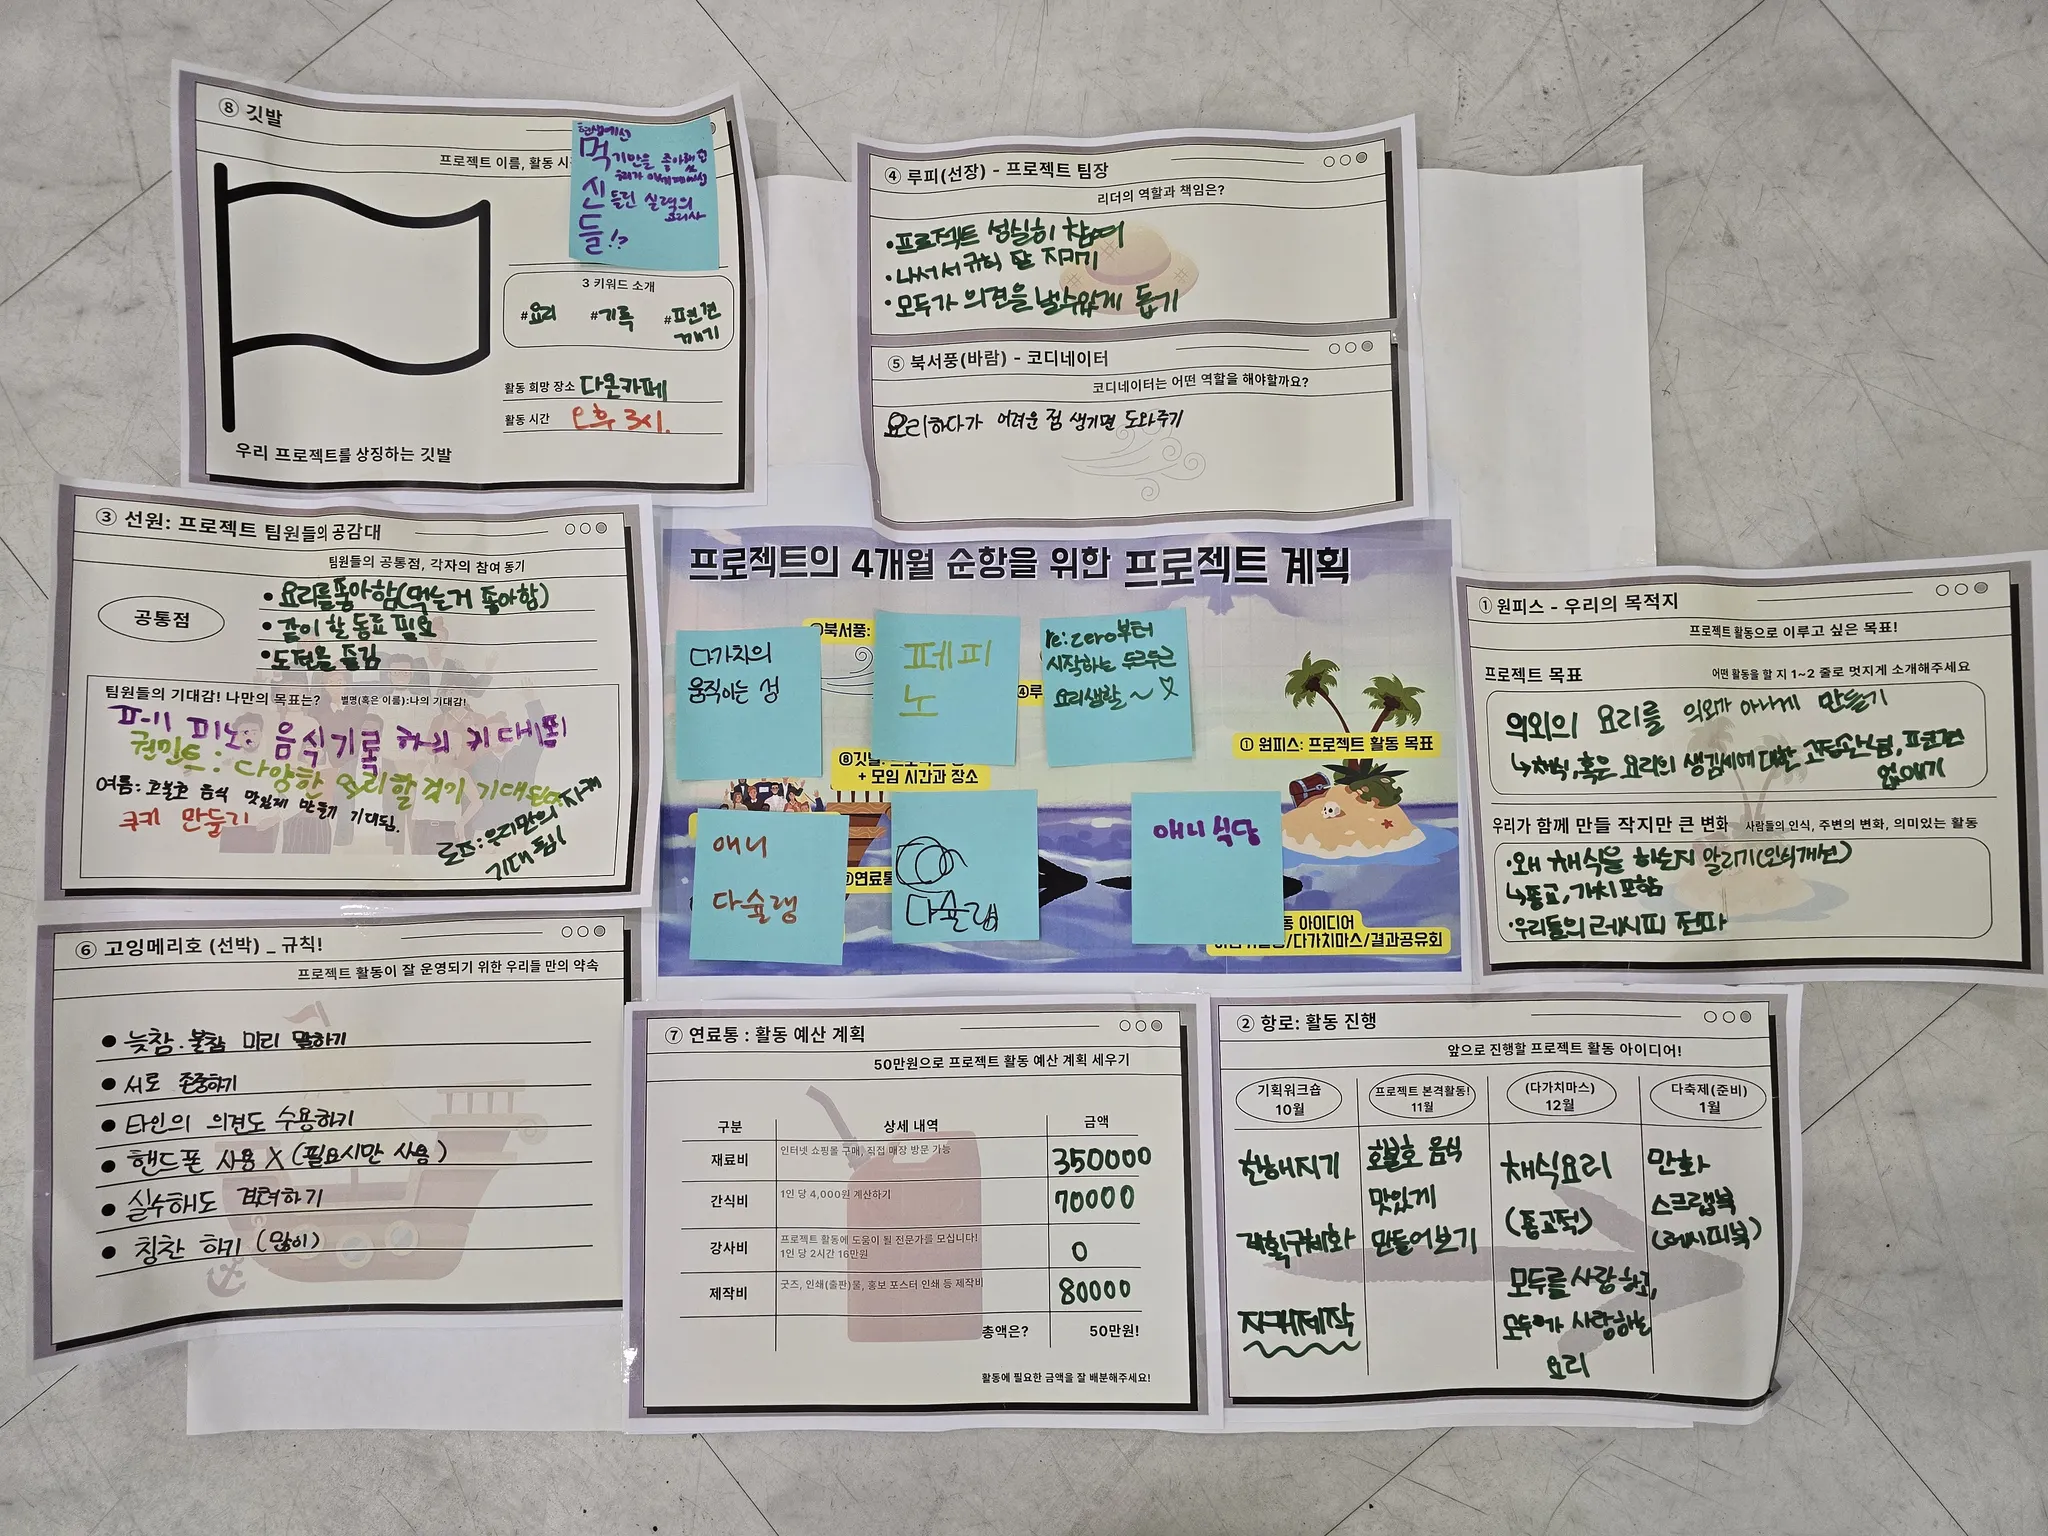 ⑧ 깃발
프로젝트 이름, 활동 시
현생에선
먹기만을 좋아했던
우리가 이세계에선
신들린 실력의
요리사
들!?
3 키워드 소개
#요리 #기록 #편견
깨기
활동 희망 장소 다온카페
활동 시간 오후 3시.
우리 프로젝트를 상징하는 깃발
④ 루피(선장) - 프로젝트 팀장
리더의 역할과 책임은?
•프로젝트 성실히 참여
•나서서 규칙 잘 지키기
•모두가 의견을 낼수있게 돕기
⑤ 북서풍(바람) - 코디네이터
코디네이터는 어떤 역할을 해야할까요?
요리하다가 어려운 점 생기면 도와주기
③ 선원: 프로젝트 팀원들의 공감대
팀원들의 공통점, 각자의 참여 동기
공통점
• 요리를좋아함(먹는거 좋아함)
• 같이 할 동료 필요
• 도전을 즐김
팀원들의 기대감! 나만의 목표는? 별명(혹은 이름):나의 기대감!
페피노: 음식기록 하의 기대됨
권민트: 다양한 요리할것이 기대된다
여름: 호불호 음식 맛있게 만들기 기대됨.
쿠키 만들기
로즈: 우리만의
기대됨!
프로젝트의 4개월 순항을 위한 프로젝트 계획
다가치의
움직이는 성
페피
노
re:zero부터
시작하는 두근두근
요리생활~♡
북서풍:
④루
① 원피스: 프로젝트 활동 목표
⑧깃발:
+ 모임 시간과 장소
애니
다슐랭
다슐랭
애니식당
연료통
동 아이디어
/다가치마스/결과공유회
① 원피스 - 우리의 목적지
프로젝트 활동으로 이루고 싶은 목표!
프로젝트 목표 어떤 활동을 할 지 1~2 줄로 멋지게 소개해주세요
의외의 요리를 의외가 아니게 만들기
↳채식, 혹은 요리의 생김새에 대한 고정관념, 편견
없애기
우리가 함께 만들 작지만 큰 변화 사람들의 인식, 주변의 변화, 의미있는 활동
•왜 채식을 하는지 알리기(인식개선)
↳종교, 가치 포함
•우리들의 레시피 전파
⑥ 고잉메리호 (선박) _ 규칙!
프로젝트 활동이 잘 운영되기 위한 우리들 만의 약속
• 늦참. 불참 미리 말하기
• 서로 존중하기
• 타인의 의견도 수용하기
• 핸드폰 사용 X (필요시만 사용)
• 실수해도 격려하기
• 칭찬 하기 (많이)
⑦ 연료통 : 활동 예산 계획
50만원으로 프로젝트 활동 예산 계획 세우기
구분 상세 내역 금액
재료비 인터넷 쇼핑몰 구매, 직접 매장 방문 가능 350000
간식비 1인 당 4,000원 계산하기 70000
강사비 프로젝트 활동에 도움이 될 전문가를 모십니다!
1인 당 2시간 16만원 0
제작비 굿즈, 인쇄(출판)물, 홍보 포스터 인쇄 등 제작비 80000
총액은? 50만원!
활동에 필요한 금액을 잘 배분해주세요!
② 항로: 활동 진행
앞으로 진행할 프로젝트 활동 아이디어!
기획워크숍
10월
친해지기
계획구체화
자개제작
프로젝트 본격활동!
11월
호불호 음식
맛있게
만들어보기
(다가치마스)
12월
채식요리
(종교적)
모두를 사랑하고,
모두가 사랑하는
요리
다축제(준비)
1월
만화
스크랩북
(레시피북)